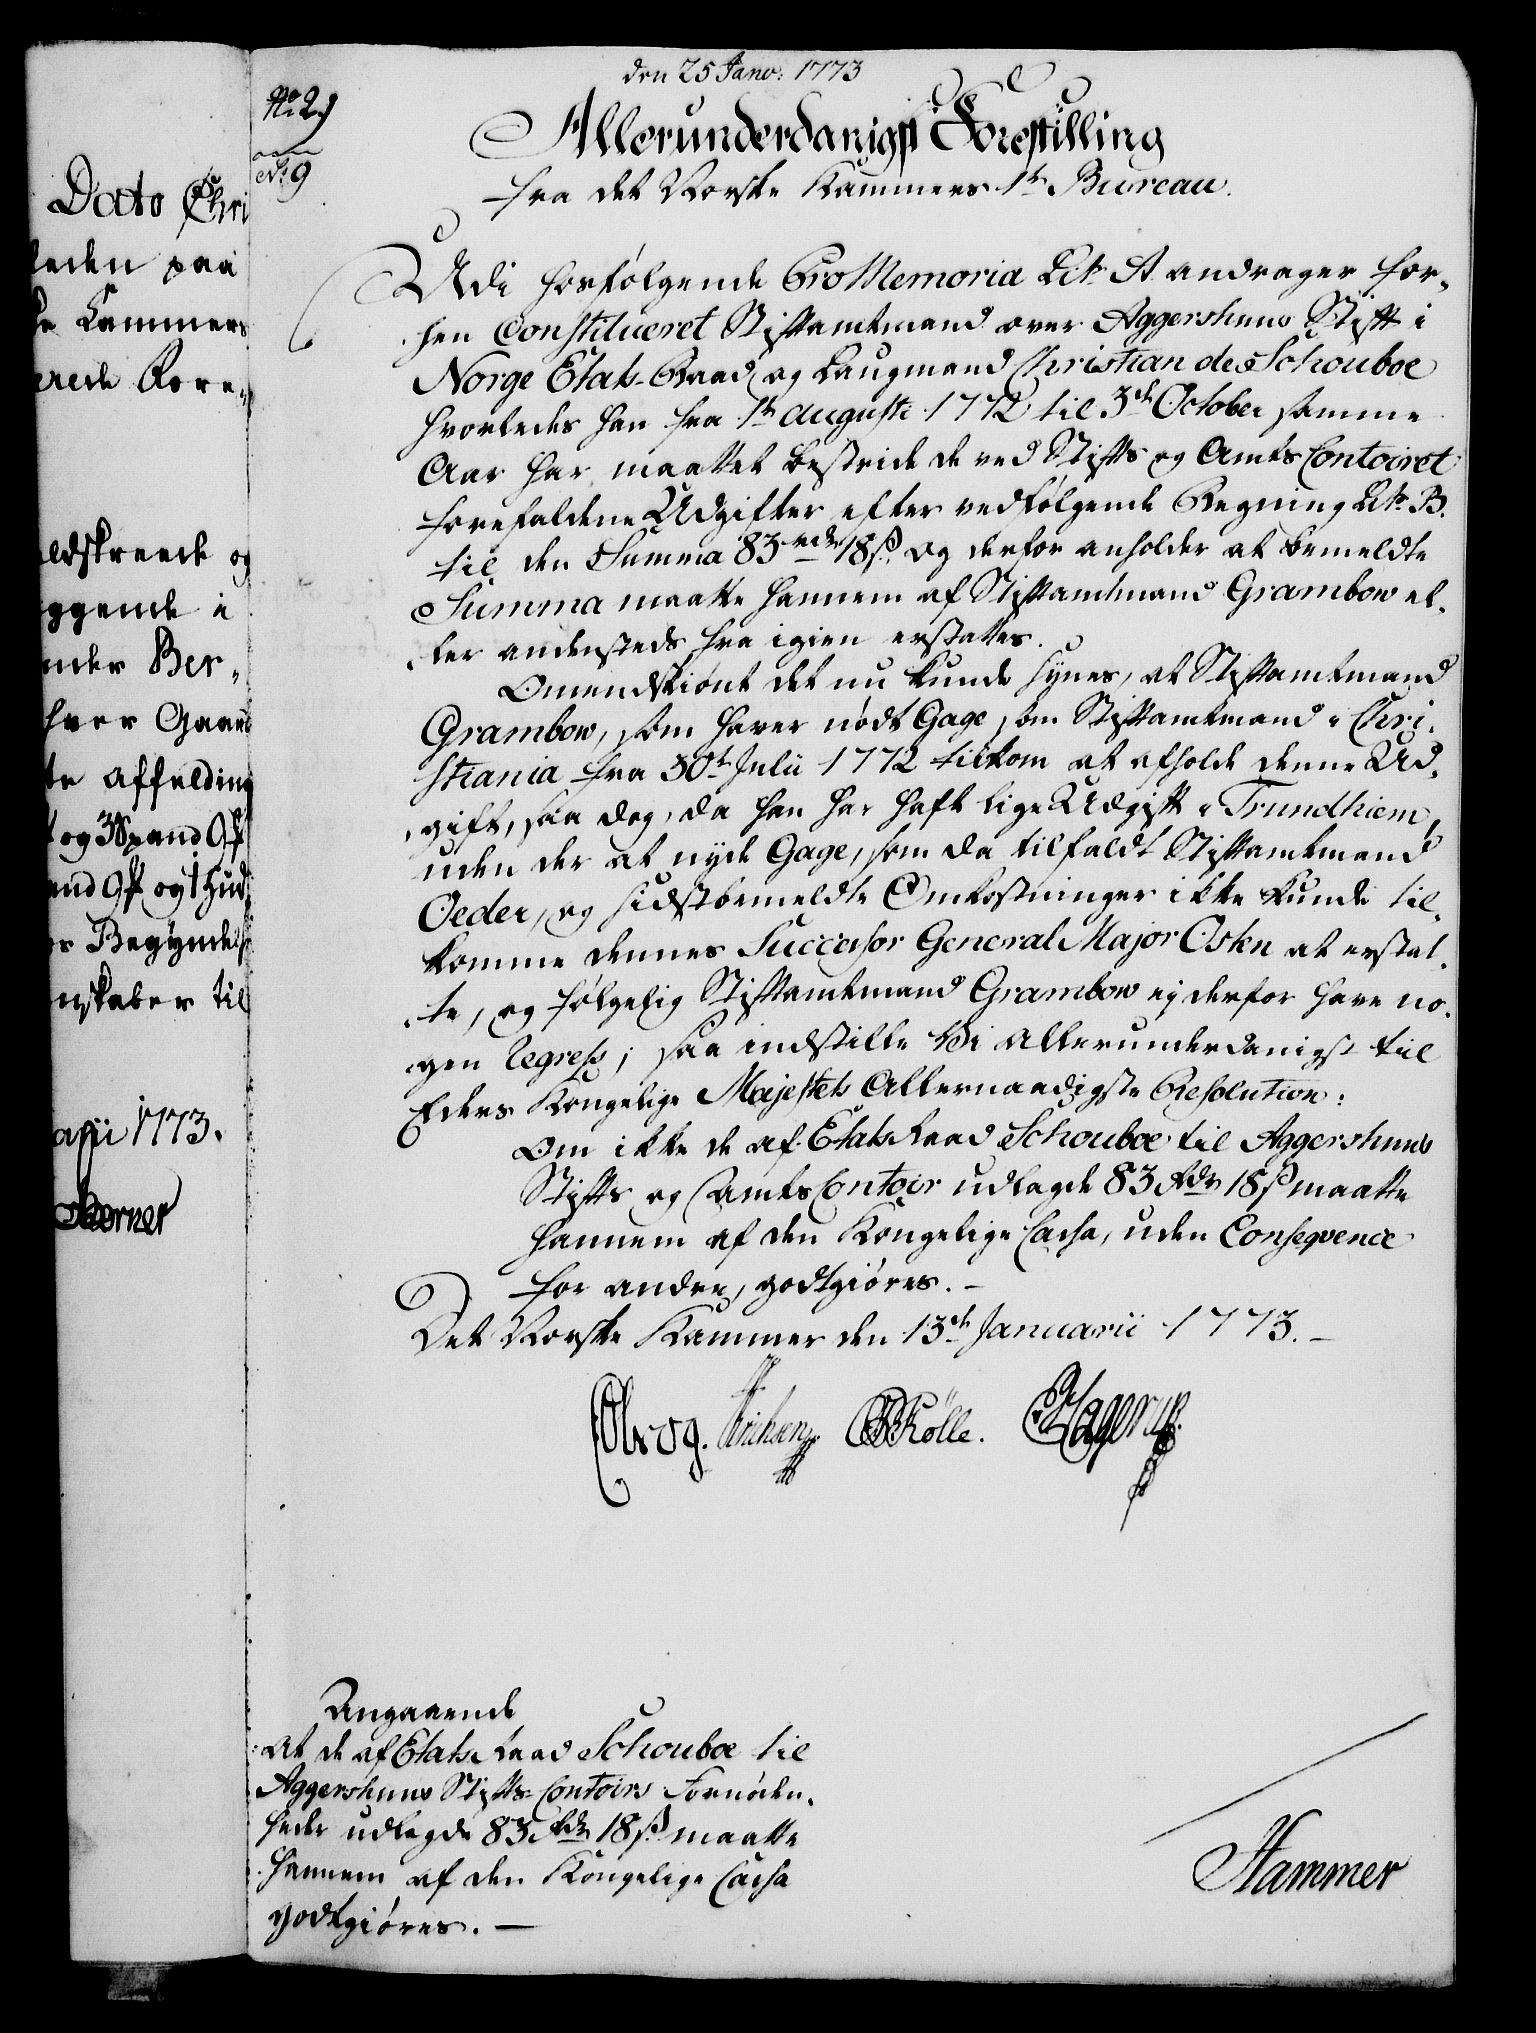 den 25 Janv: 1773
No 29
No 9
Allerunderdanigst Forestilling
fra det Norske Kammers 1te Bureau.
Udi hosfølgende ProMemoria Litr A andrager for-
hen Constitueret Stiftamtmand over Aggershuus Stift i
Norge Etats-Raad og Laugmand Christian de Schouboe
hvorledes han fra 1te Augusti 1772 til 3die October samme
Aar har maattet bestride de ved Stifts og Amts Contoiret
forefaldene Udgifter efter vedfølgende Regning Litr B.
til den Summa 83 rdr 18 ß, og derfor anholder at bemeldte
Summa maatte hannem af Stiftamtmand Grambow el-
ler andensteds fra igien erstattes.
Omendskiønt det nu kunde synes, at Stiftamtmand
Grambow, som haver nødt Gage som Stiftamtmand i Chri-
stiania fra 30te Julii 1772 tilkom at afholde denne Ud-
gift, saa dog, da han har haft lige Udgift i Trundhiem,
uden der at nyde Gage, som da tilfaldt Stiftamtmand
Oeder, og sidstbemeldte Omkostninger ikke kunde til-
komme dennes Successor General Major Osten at erstat-
te, og følgelig Stiftamtmand Grambow ej derfor have no-
gen Regress; saa indstille Vi allerunderdanigst til
Eders Kongelige Majestets Allernaadigste Resolution:
Om ikke de af Etats Raad Schouboe til Aggershuus
Stifts og Amts Contoir udlagde 83 Rdr 18 ß maatte
hannem af den Kongelige Cassa, uden Conseqvence
for andre, godtgiøres. -
Det Norske Kammer den 13de Januarii 1773. -
Erichsen GRølle. EHagerup.
Angaaende
at de af Etats Raad Schouboe til
Aggershuus Stifts-Contoirs Fornøden-
heder udlagde 83 Rdr 18 ß maatte
hannem af den Kongelige Cassa
godtgiøres. -
Hammer
Dato Chri
leden paa
Kammers
erede Fore-
eldskreede og
ggende i
under Ber-
hver Gaard
te affælding
og 3 Spand
og 1 Hud
Begyndels
nskaber til
1773.